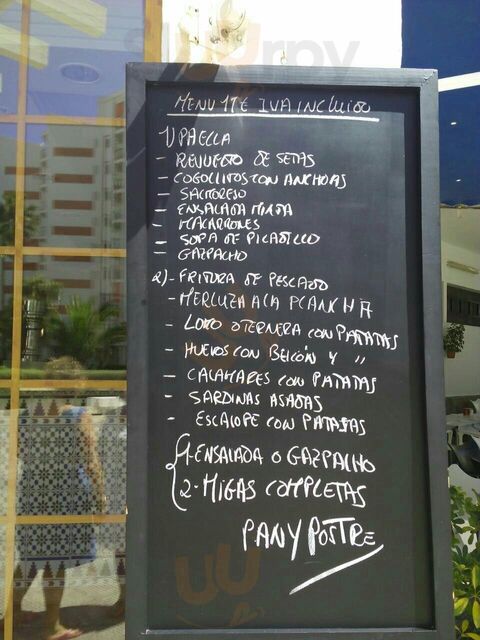 MENU 11€ IVA INCLUIDO
1) PAELLA
- REVUELTO DE SETAS
- COGOLLITOS CON ANCHOAS
- SALMOREJO
- ENSALADA MIXTA
- MACARRONES
- SOPA DE PICADILLO
- GAZPACHO
2) - FRITURA DE PESCADO
- MERLUZA A LA PLANCHA
- LOMO O TERNERA CON PATATAS
- HUEVOS CON BEICÓN Y "
- CALAMARES CON PATATAS
- SARDINAS ASADAS
- ESCALOPE CON PATATAS
1- ENSALADA O GAZPACHO
2- MIGAS COMPLETAS
PAN Y POSTRE